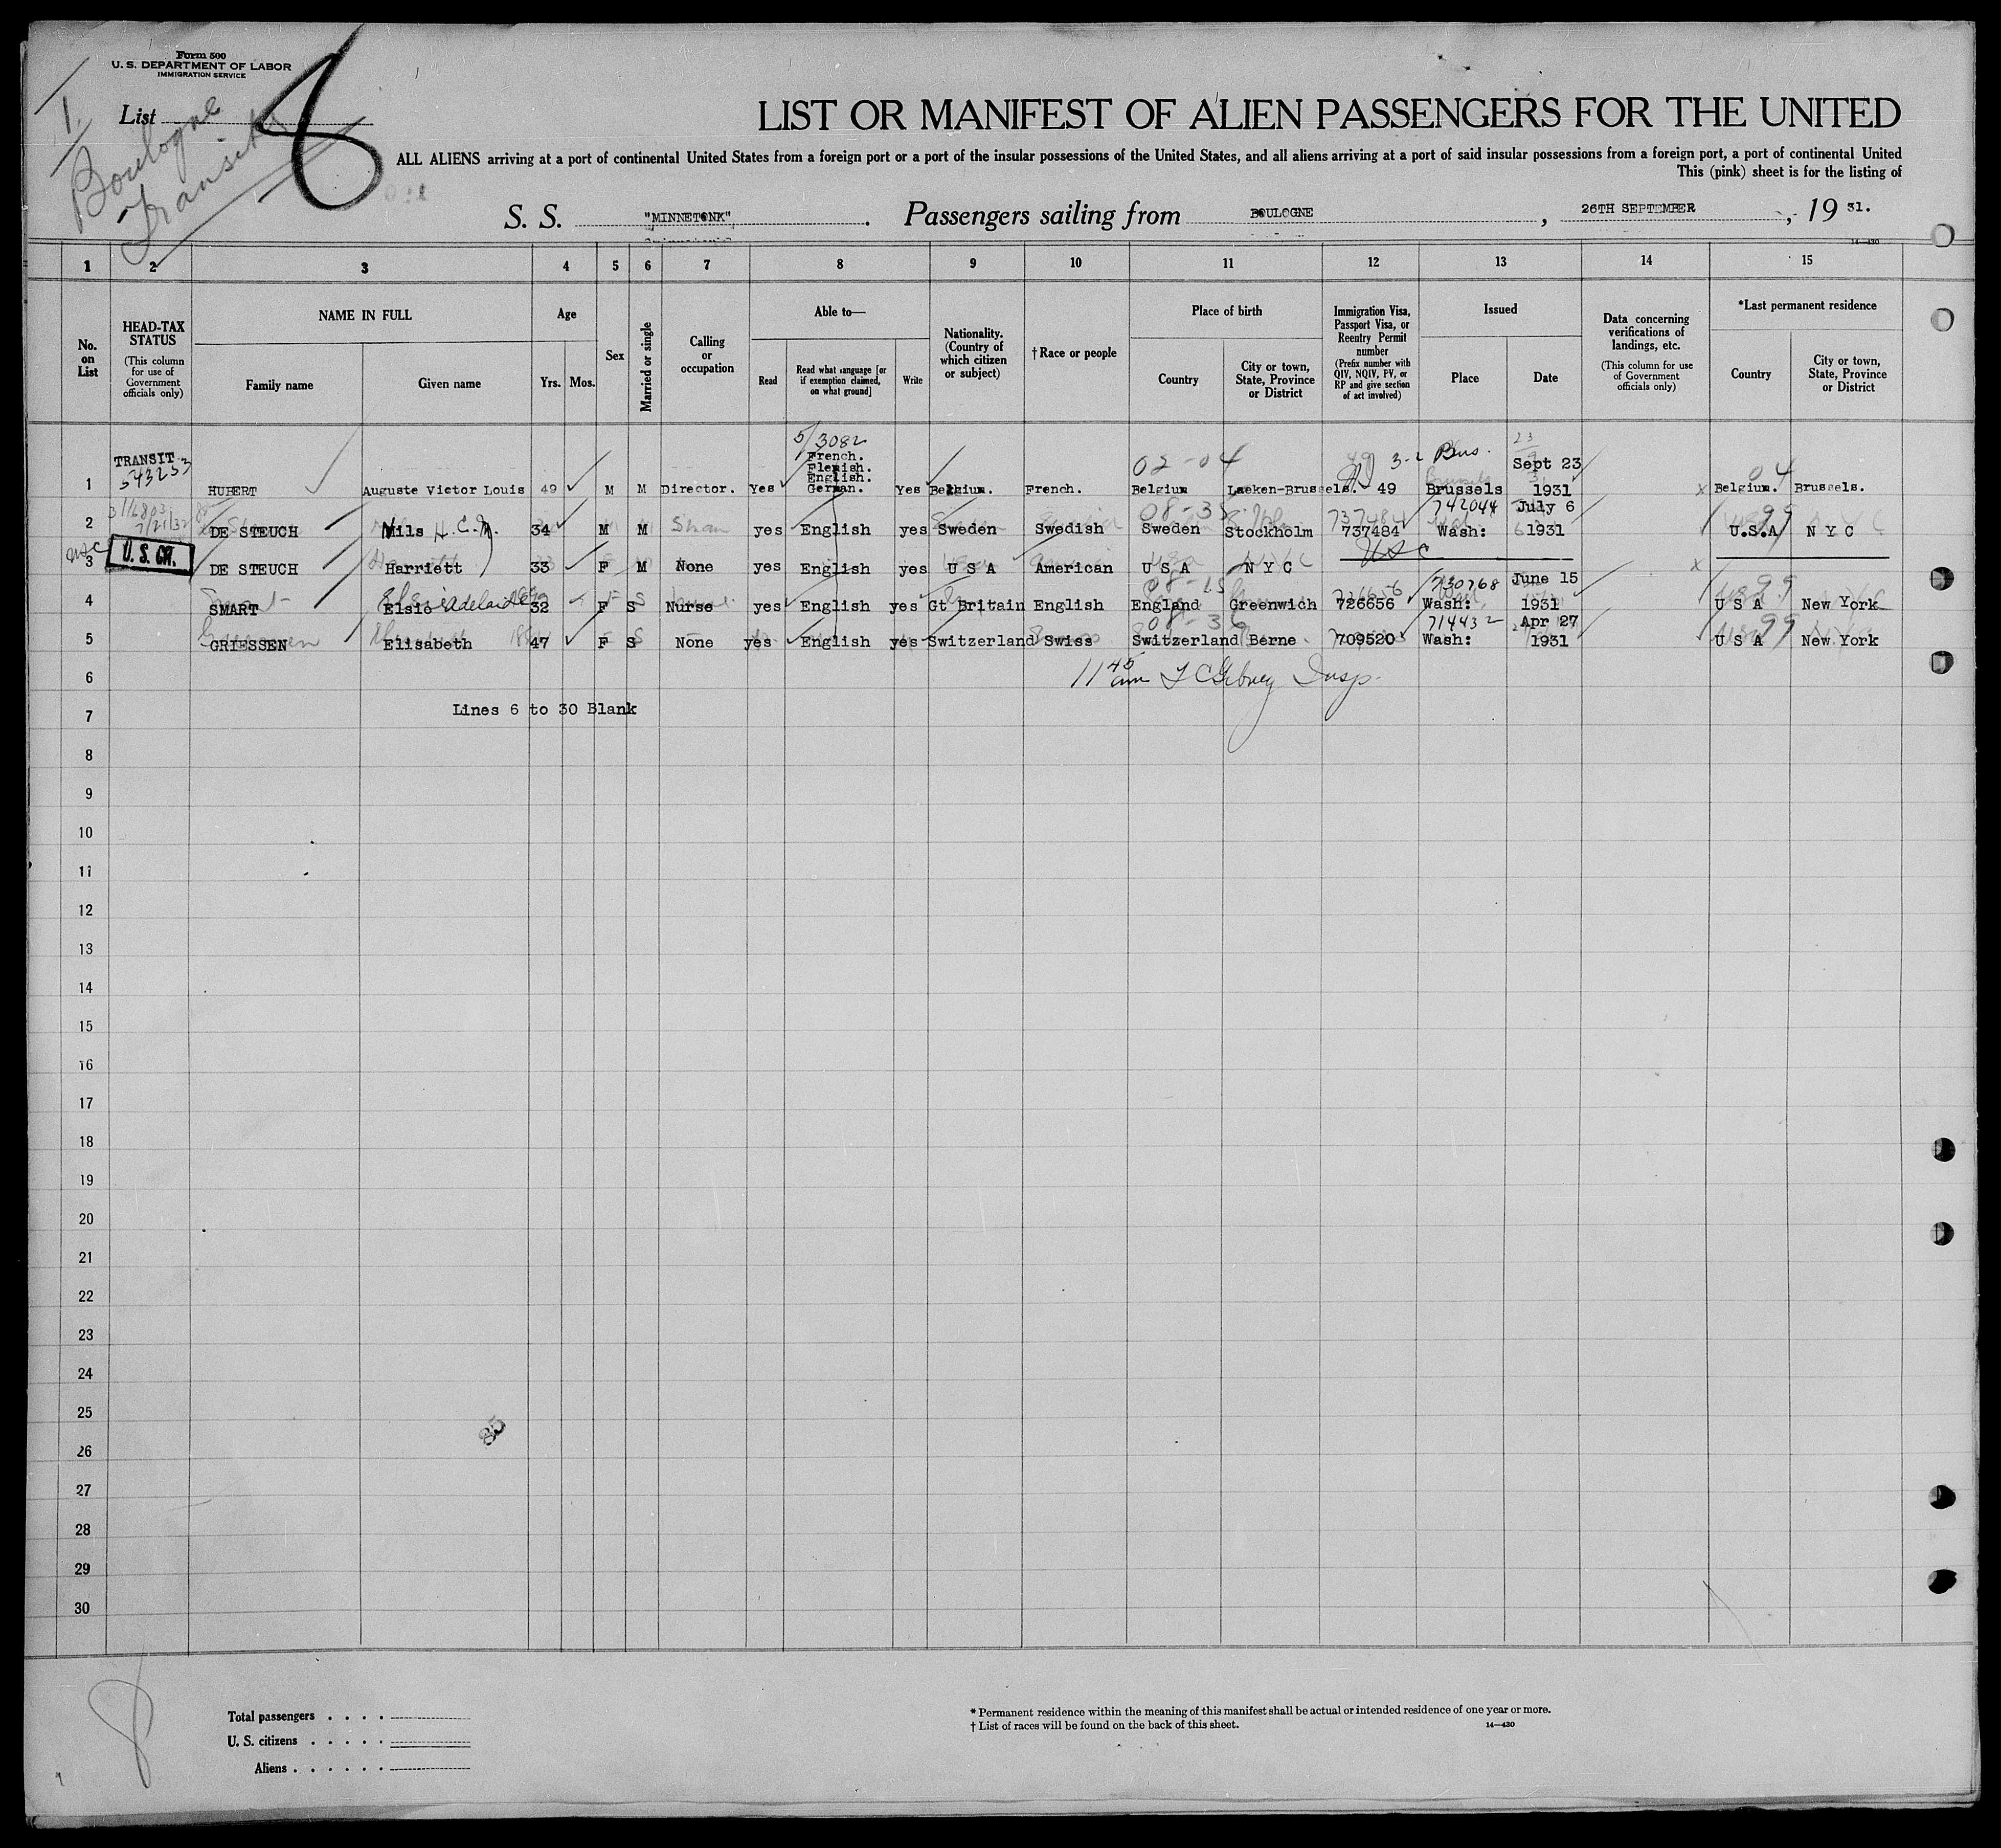 Form 500
U. S. DEPARTMENT OF LABOR
IMMIGRATION SERVICE
1.
List
8
Boulogne
Transit
LIST OR MANIFEST OF ALIEN PASSENGERS FOR THE UNITED
ALL ALIENS arriving at a port of continental United States from a foreign port or a port of the insular possessions of the United States, and all aliens arriving at a port of said insular possessions from a foreign port, a port of continental United
This (pink) sheet is for the listing of
S. S. "MINNETONK". Passengers sailing from BOULOGNE, 26TH SEPTEMBER, 19 31.
14—430
1 2 3 4 5 6 7 8 9 10 11 12 13 14 15
No. on List
HEAD-TAX STATUS (This column for use of Government officials only)
NAME IN FULL
Family name Given name
Age
Yrs. Mos.
Sex
Married or single
Calling or occupation
Able to—
Read Read what language [or if exemption claimed, on what ground] Write
Nationality. (Country of which citizen or subject)
† Race or people
Place of birth
Country City or town, State, Province or District
Immigration Visa, Passport Visa, or Reentry Permit number (Prefix number with QIV, NQIV, PV, or RP and give section of act involved)
Issued
Place Date
Data concerning verifications of landings, etc. (This column for use of Government officials only)
*Last permanent residence
Country City or town, State, Province or District
5/3082
TRANSIT 543253 02-04 3-2 Brus. 04
1 HUBERT Auguste Victor Louis 49 M M Director. Yes French. Flemish. English. German. Yes Belgium. French. Belgium Laeken-Brussels. 49 Brussels Sept 23 1931 Belgium. Brussels.
7/21/32 08-35 742044 99
2 DE STEUCH Nils H. C. M. 34 M M yes English yes Sweden Swedish Sweden Stockholm 737484 Wash: July 6 1931 U.S.A N Y C
USC U. S. CIT. USC
3 DE STEUCH Harriett 33 F M None yes English yes U S A American U S A N Y C
08-15 730768 99
4 SMART Elsie Adelaide 32 F S Nurse yes English yes Gt Britain English England Greenwich 726656 Wash: June 15 1931 U S A New York
08-36 714432 99
5 GRIESSEN Elisabeth 47 F S None yes English yes Switzerland Swiss Switzerland Berne 709520 Wash: Apr 27 1931 U S A New York
6 11 45 am Insp.
7 Lines 6 to 30 Blank
8
9
10
11
12
13
14
15
16
17
18
19
20
21
22
23
24
25
26
27
28
29
30
8
Total passengers . . . .
U. S. citizens . . . . .
Aliens . . . . . .
* Permanent residence within the meaning of this manifest shall be actual or intended residence of one year or more.
† List of races will be found on the back of this sheet.
14—430